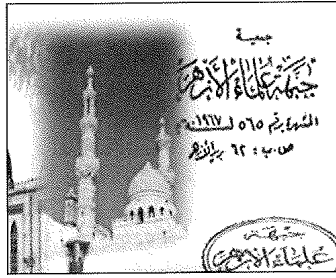 جمعية
جبهة علماء الأزهر
المشهرة برقم ٥٦٥ لسنة ١٩٦٧م
ص.ب: ٦٢ بريد الأزهر
جبهة
علماء الأزهر